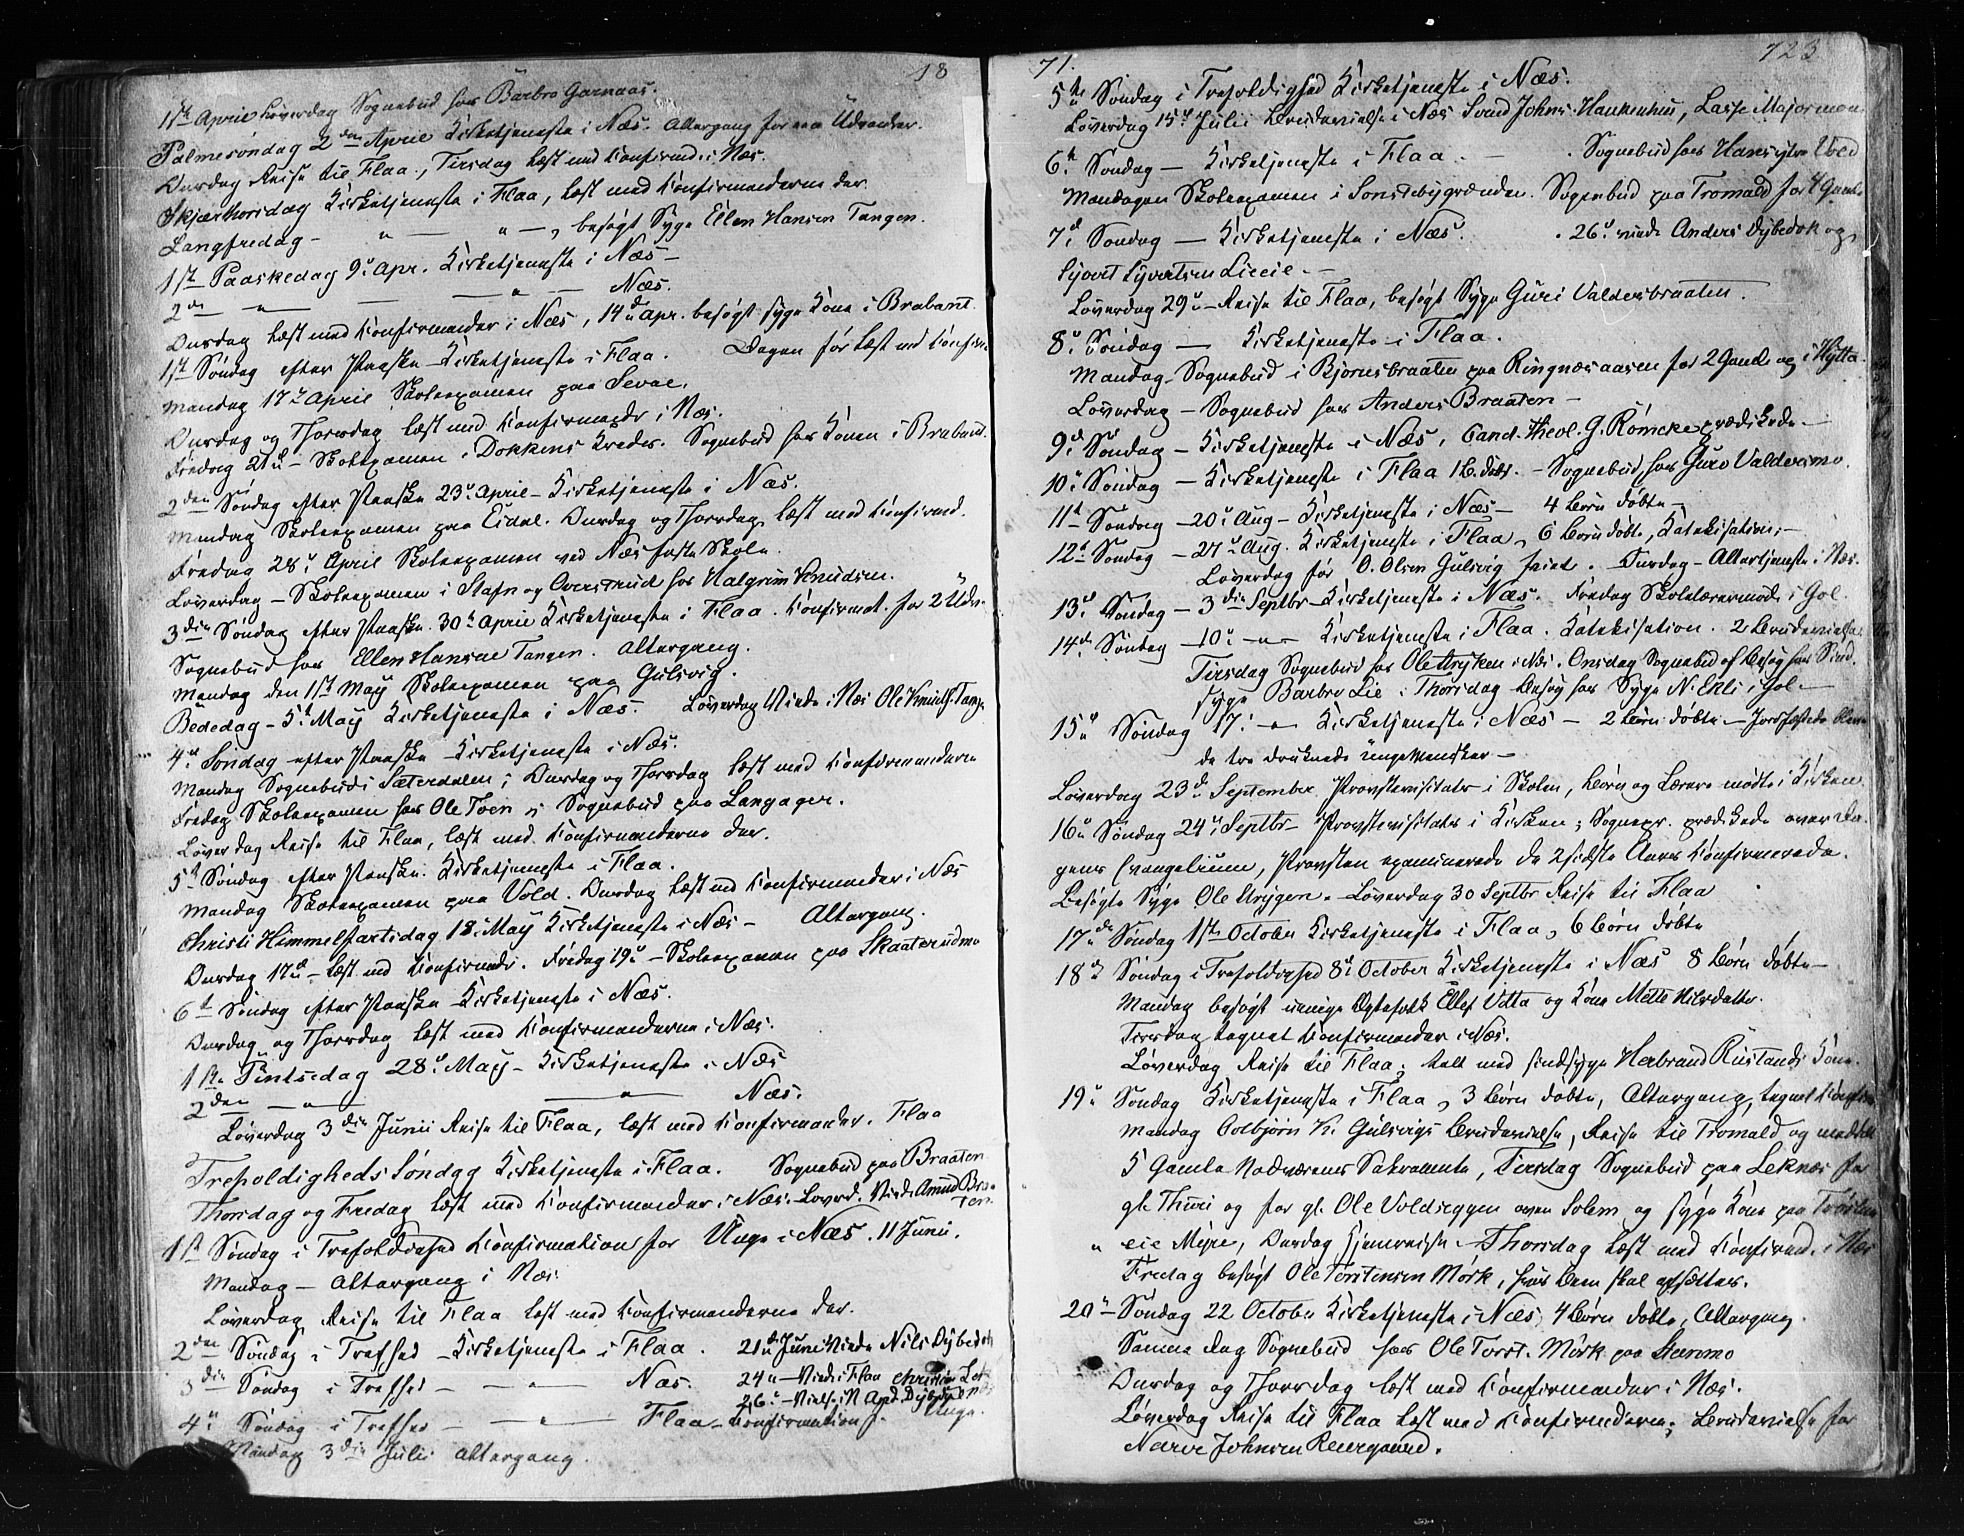 18
1ste April Løverdag Sognebud hos Barbro Garnaas.
Palmesøndag 2den April Kirketjeneste i Næs. Altergang for Udvandrer.
Onsdag Reise til Flaa, Tirsdag læst med Confirmd. i Næs.
Skjærthorsdag Kirketjeneste i Flaa, læst med Confirmanderne der.
Langfredag - " — " —, besøgt Syge Ellen Hansen Tangen.
1ste Paaskedag 9d Apr. Kirketjeneste i Næs —
2den — " — — " — Næs.
Onsdag læst med Confirmander i Næs, 14de Apr. besøgt syge Kone i Brabant.
1ste Søndag efter Paaske Kirketjeneste i Flaa. Dagen før læst med Confirm.
Mandag 17de April Skoleexamen paa Sevre.
Onsdag og Thorsdag læst med Confirmandr. i Næs.
Fredag 21d — Skoleexamen i Dokkens Kreds. Sognebud hos Konen i Brabant.
2den Søndag efter Paaske 23d April — Kirketjeneste i Næs.
Mandag Skoleexamen paa Eidal. Onsdag og Thorsdag læst med Confirmd.
Fredag 28d April Skoleexamen ved Næs faste Skole.
Løverdag — Skoleexamen i Stafn og Overstrud hos Halgrim Knudsen.
3die Søndag efter Paaske 30te April Kirketjeneste i Flaa. Confirmat. for 2 Udv.
Sognebud hos Ellen Hansen Tangen. Altergang.
Mandag den 1ste May Skoleexamen paa Gulsvig.
Bededag — 5te May Kirketjeneste i Næs. Løverdag Viede i Næs Ole Knuds. Tange
4de Søndag efter Paaske Kirketjeneste i Næs.
Mandag Sognebud i Sæterdalen; Onsdag og Thorsdag læst med Confirmanderne
Fredag Skoleexamen hos Ole Toen; Sognebud paa Langager.
Løverdag Reise til Flaa, læst med Confirmanderne der.
5te Søndag efter Paaske. Kirketjeneste i Flaa.
Mandag Skoleexamen paa Vold. Onsdag læst med Confirmander i Næs
Christi Himmelfartsdag 18 May Kirketjeneste i Næs — Altergang.
Onsdag 17d — læst med Confirmandr. Fredag 19d — Skoleexamen paa Skaaterudmo
6te Søndag efter Paaske Kirketjeneste i Næs.
Onsdag og Thorsdag læst med Confirmanderne i Næs.
1ste Pintsedag 28d May — Kirketjeneste i Næs
2den — " — — " — Næs.
Løverdag 3die Junii Reise til Flaa, læst med Confirmander. Flaa
Trefoldigheds Søndag Kirketjeneste i Flaa. Sognebud paa Braaten
Thorsdag og Fredag læst med Confirmander i Næs. Løverd. Viede Amund Braaten.
1ste Søndag i Trefoldighed Confirmation for Unge i Næs. 11 Junii.
Mandag — Altergang i Næs.
Løverdag Reise til Flaa læst med Confirmanderne der.
2den Søndag i Trefhed — Kirketjeneste i Flaa. 21d Juni Viede Nils Dybedok
3die Søndag i Trefhed — — " — Næs. 24d — Viede i Flaa Christian
26d — Viels. i N. And. Dybedok
4d Søndag i Trefhed — — " — Flaa — Confirmation f. Unge.
Mandag 3die Julii Altergang.
71. 723
5te Søndag i Trefoldighed Kirketjeneste i Næs.
Løverdag 15d Julii Brudevielse i Næs Svend Johns. Haukenhus, Lasse Majormoen
6te Søndag — Kirketjeneste i Flaa. — Sognebud hos Hans ytre Vold
Mandagen Skoleexamen i Sonstebygrænden. Sognebud paa Tromald for 4 Gamle
7d Søndag — Kirketjeneste i Næs. 26d viede Anders Dybedok og
Sjovert Syvertsen Liceie. —
Løverdag 29d — Reise til Flaa, besøgt Syge Guri Valdersbraaten.
8d Søndag — Kirketjeneste i Flaa.
Mandag — Sognebud i Bjørnsbraaten paa Ringnæsaasen for 2 Gamle og i Hytta.
Løverdag — Sognebud hos Anders Braaten —
9d Søndag — Kirketjeneste i Næs, Cand. theol. G. Römcke prædikede. —
10d Søndag — Kirketjeneste i Flaa 1 B. døbt. — Sognebud hos Guro Valdersmo.
11te Søndag — 20d Aug — Kirketjeneste i Næs — 4 Børn døbte —
12te Søndag — 27d Aug. Kirketjeneste i Flaa, 6 Børn døbt, Katekisation; —
Løverdag før O. Olsen Gulsvig . Onsdag — Altertjeneste i Næs.
13d Søndag — 3die Septbr — Kirketjeneste i Næs. Fredag Skolelærermøde i Gol.
14de Søndag — 10d — " — Kirketjeneste i Flaa. Katekisation. 2 Brudevielser.
Tirsdag Sognebud hos Ole Myken i Næs. Onsdag Sognebud og Besøg hos Sind-
syge Barbro Lie; Thorsdag Besøg hos Syge N. Ekli i Gol —
15d Søndag 17d — " — Kirketjeneste i Næs — 2 Børn døbte — Jordfæstede
de tre druknede unge Mennesker —
Løverdag 23d September Provstevisitats i Skolen, Børn og Lærere mødte i Kirken
16d Søndag 24d Septbr — Provstevisitats i Kirken; Sognepr. prædikede over Da-
gens Evangelium, Provsten examinerede de 2 sidste Aars Confirmerede.
Besøgte Syge Ole Mygen. — Løverdag 30 Septbr Reise til Flaa
17de Søndag 1ste October Kirketjeneste i Flaa, 6 Børn døbte
18d Søndag i Trefoldighed 8d October Kirketjeneste i Næs 8 Børn døbte —
Mandag besøgt uenige Ægtefolk Ellef Vitta og Kone Mette Nilsdatter.
Tirsdag tegnet Confirmander i Næs.
Løverdag Reise til Flaa; talt med sindsyge Herbrand Rustands Kone.
19d Søndag Kirketjeneste i Flaa, 3 Børn døbte, Altergang, tegnet Confirm.
Mandag Colbjørn K. Gulsvigs Brudevielse, Reise til Tromald og meddelt
5 Gamle Nadverens Sakramente, Tirsdag Sognebud paa Leknæs for
gl. Thuri og for gl. Ole Voldseggen oven Solem og syge Kone paa
" eie Myre, Onsdag Hjemreise. Thorsdag læst med Confirmd. i Næs
Fredag besøgt Ole Torstensen Mørk, hvis Been skal afsættes.
20d Søndag 22 October Kirketjeneste i Næs; 4 Børn døbte, Altergang.
Samme Dag Sognebud hos Ole Torst. Mørk paa Stenmo
Onsdag og Thorsdag læst med Confirmander i Næs.
Løverdag Reise til Flaa læst med Confirmderne; Brudevielse for
Narve Johnsen Reiergaard.